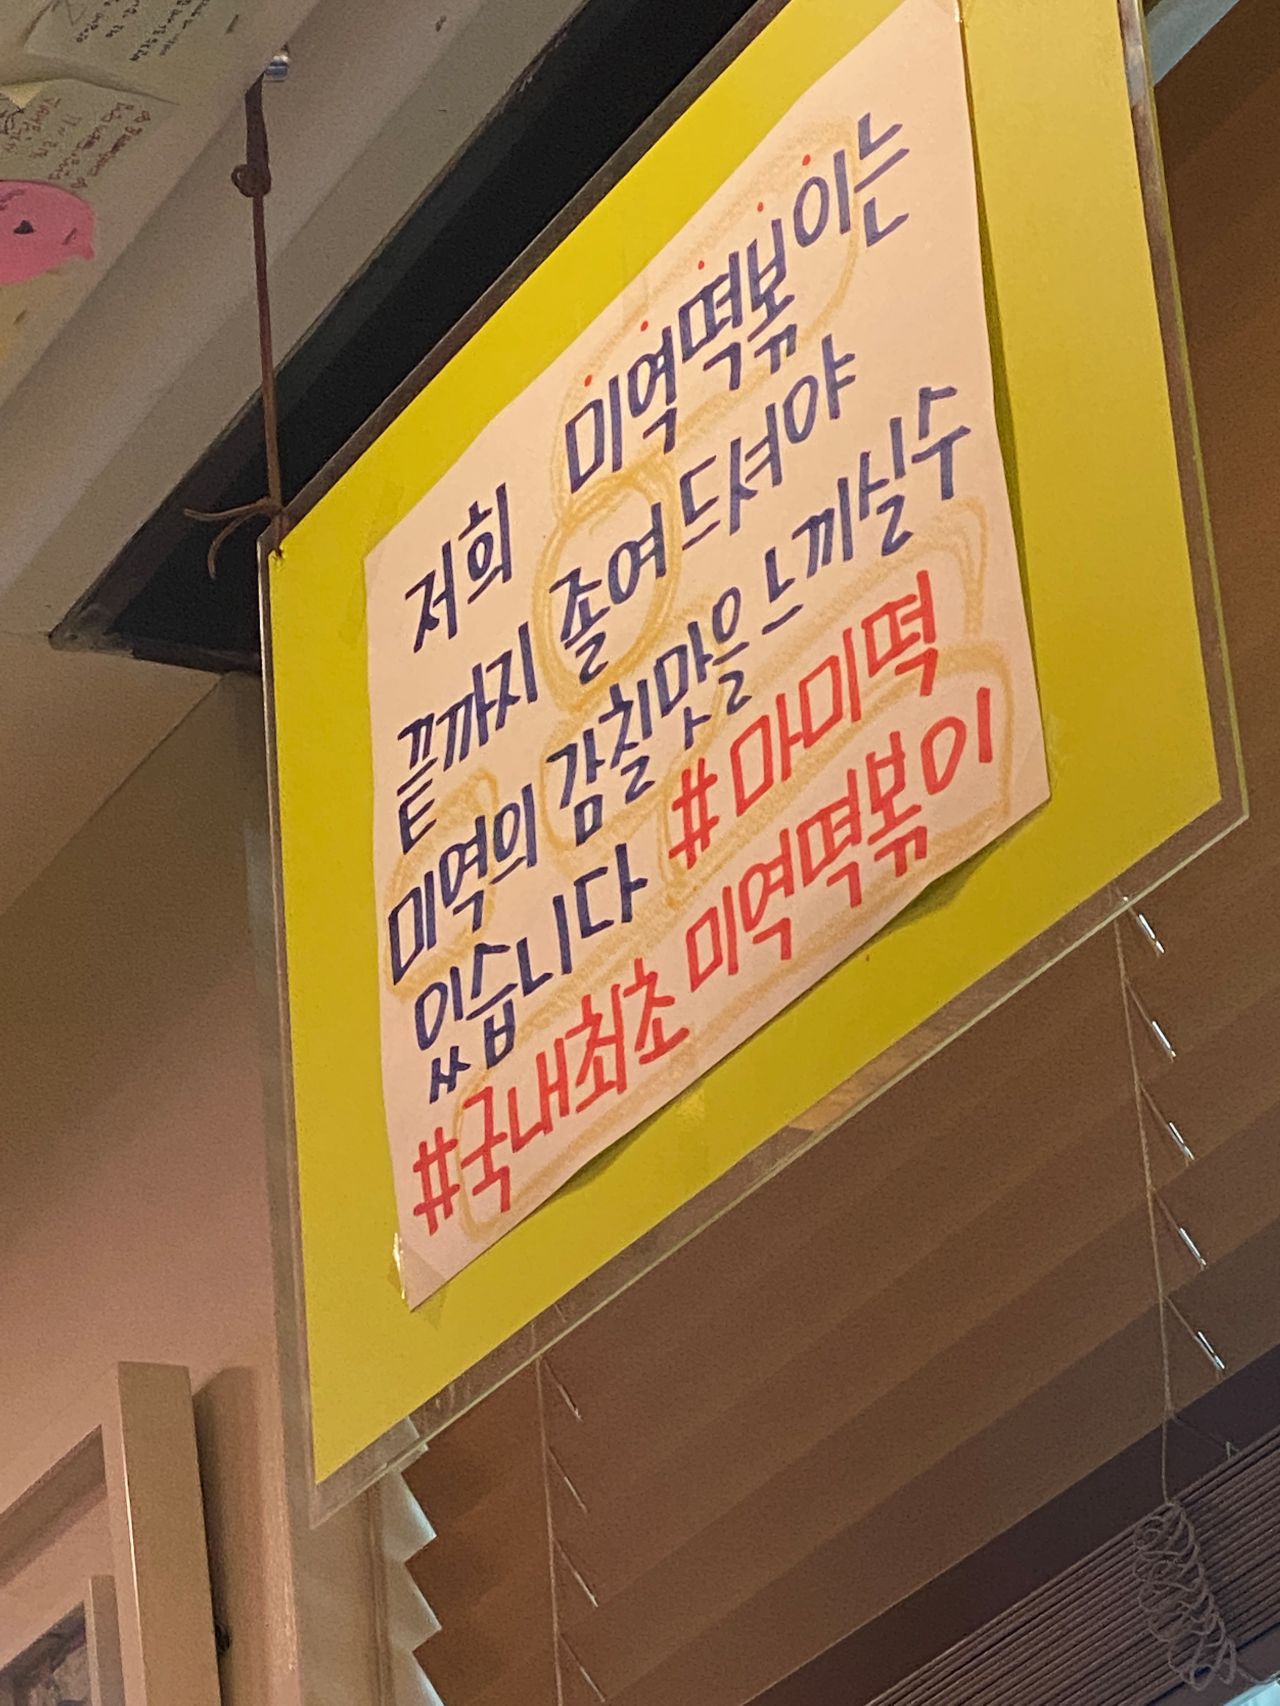 저희 미역떡볶이는
끝까지 졸여 드셔야
미역의 감칠맛을 느끼실수
있습니다 #마미떡
#국내최초 미역떡볶이